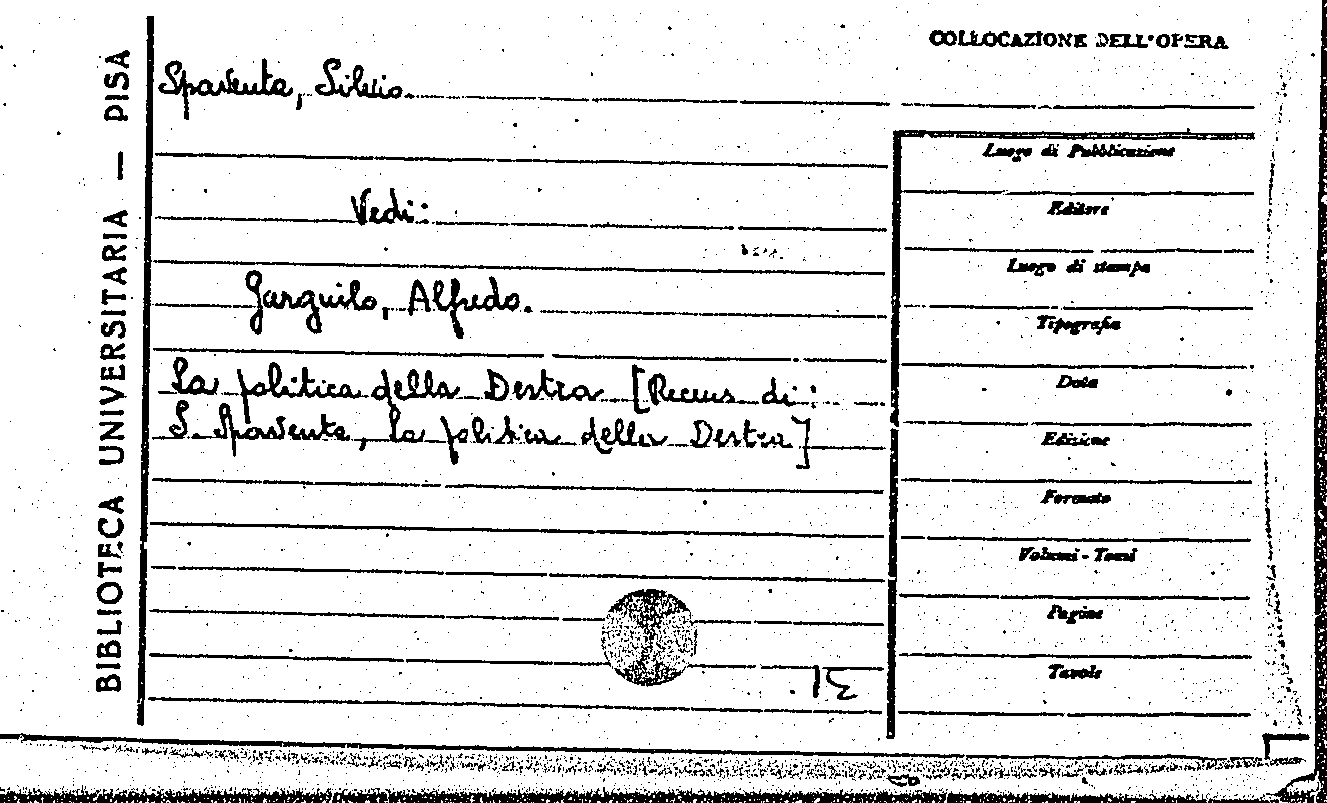 BIBLIOTECA UNIVERSITARIA — PISA
COLLOCAZIONE DELL'OPERA
Spaventa, Silvio.
Vedi:
Garguilo, Alfredo.
La politica della Destra [Recens. di:
S. Spaventa, La politica della Destra]
Luogo di Pubblicazione
Editore
Luogo di stampa
Tipografia
Data
Edizione
Formato
Volumi - Tomi
Pagine
Tavole